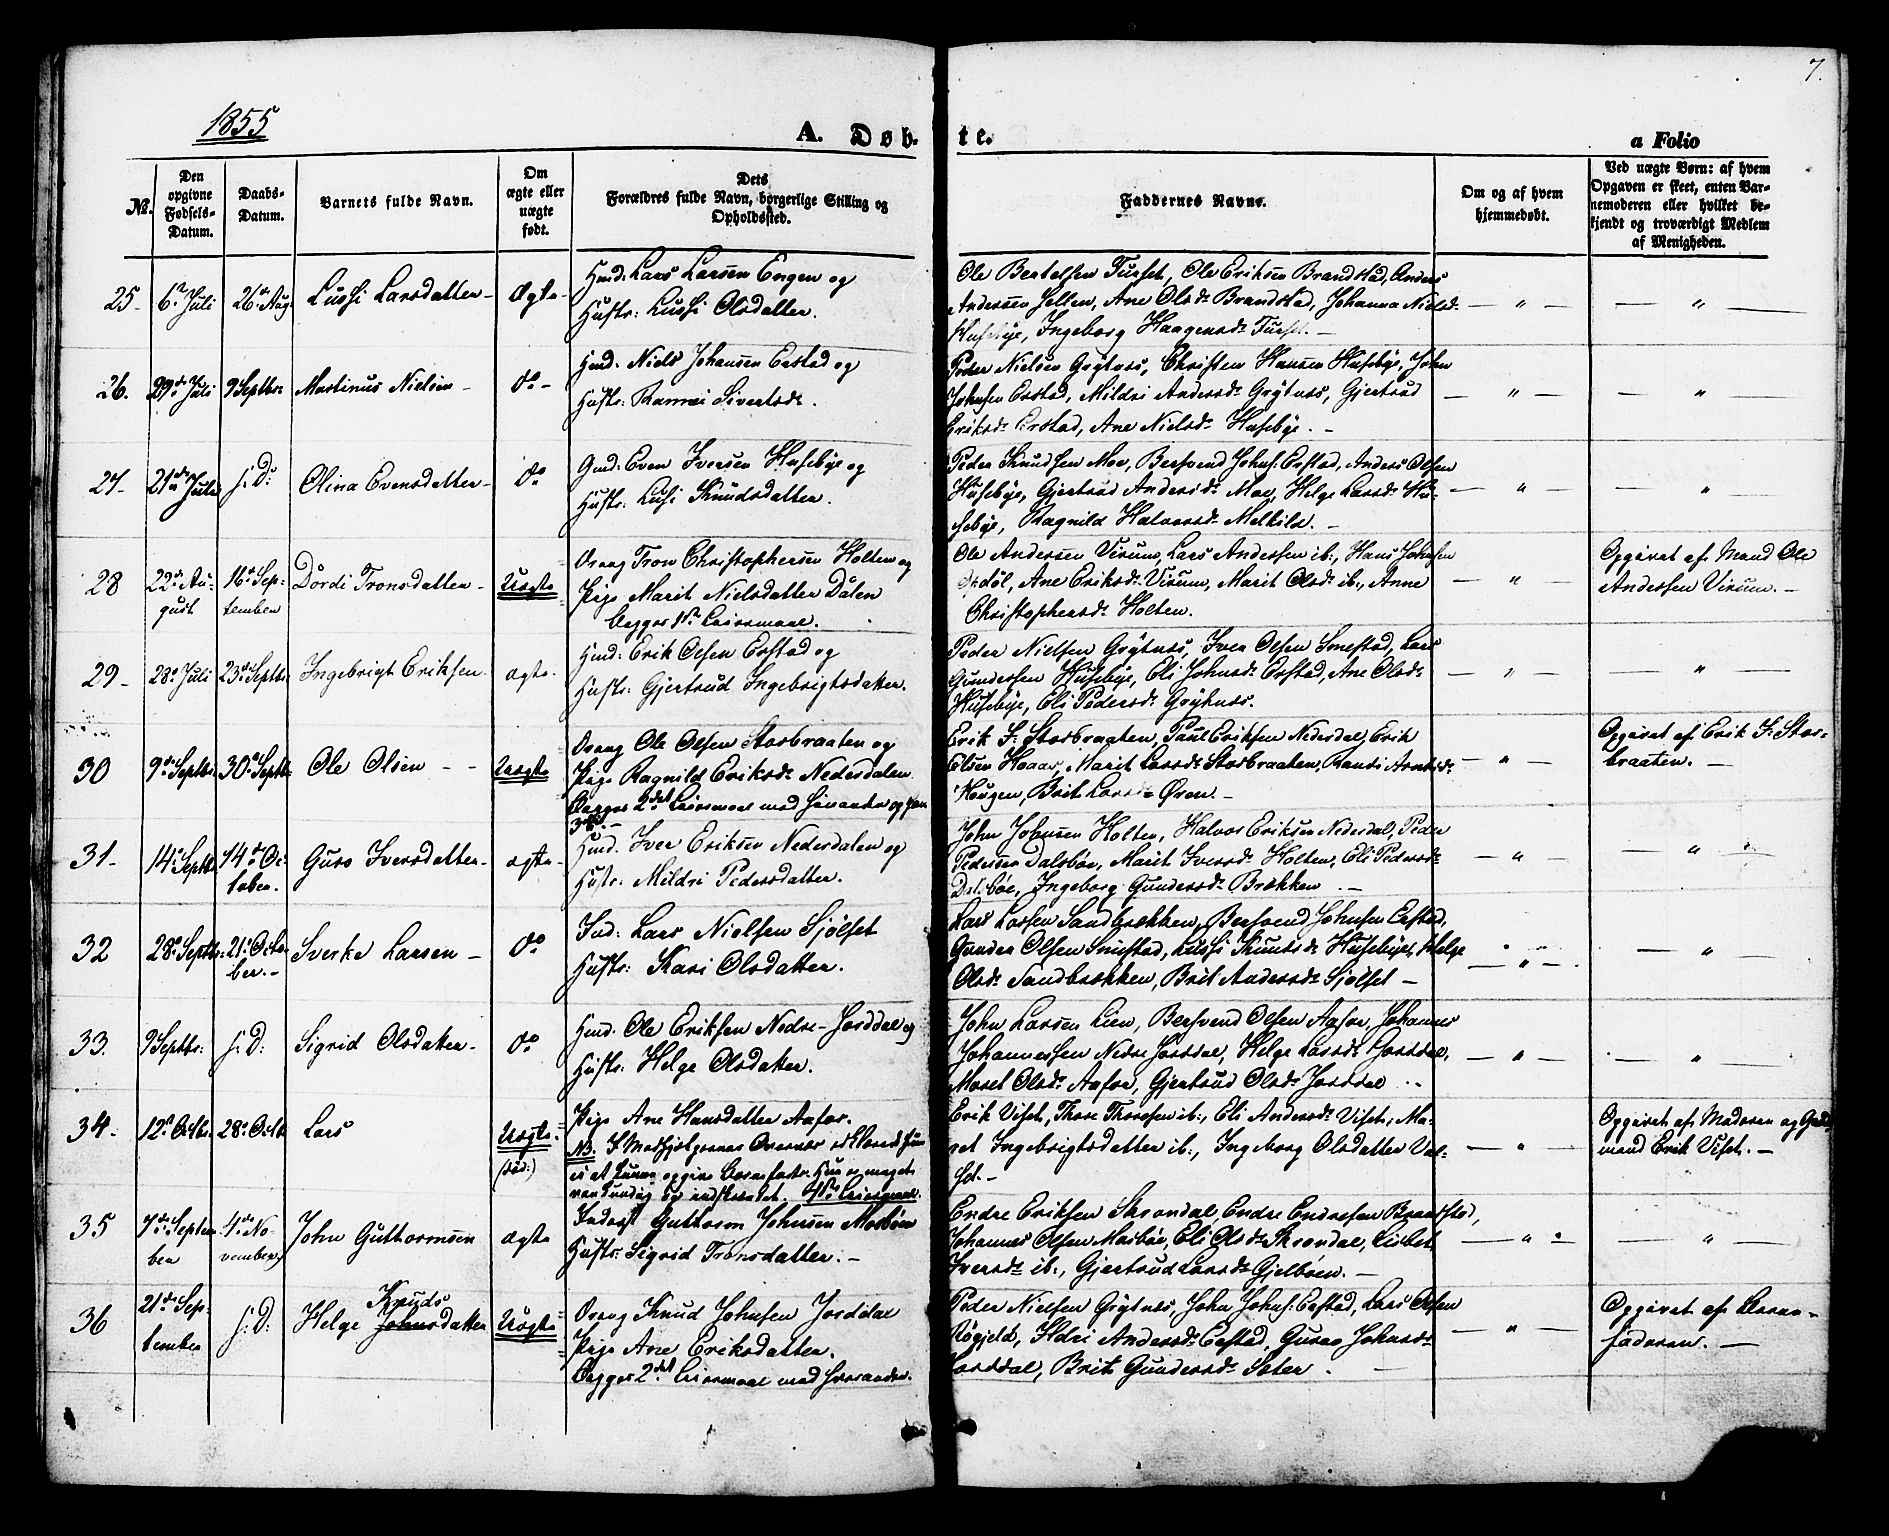 7.
1855
A. Døb-
te.
a Folio
No.
Den opgivne Fødsels-Datum.
Daabs-Datum.
Barnets fulde Navn.
Om ægte eller uægte født.
Dets Forældres fulde Navn, borgerlige Stilling og Opholdssted.
Faddernes Navne.
Om og af hvem hjemmedøbt.
Ved uægte Børn: af hvem Opgaven er skeet, enten Barnemoderen eller hvilket bekjendt og troværdigt Medlem af Menigheden.
25- 6te Juli 26de Aug Lussi Larsdatter- Ægte-
Hmd: Lars Larsen Engen og
Hustr: Lussi Olsdatter.
Ole Bertelsen Furset, Ole Eriksen Brandstad, Anders
Andersen Ane Olsdr Brandstad, Johanna Nielsd-
Husebye, Ingeborg Haagensdr Furset. -
— " —
— " —
26. 29de Juli 9 Septbr: Martinus Nielsen - do -
Hmd. Niels Johansen Eerstad og
Hustr: Sivertsdr.
Peder Nielsen Grytnes, Christen Hansen Husebye, John
Johnsen Eerstad, Mildri Andersdr Grytnes, Gjertrud
Eriksdr Eerstad, Ane Nielsdr Husebye. -
— " —
— " —
27- 21de Juli s: D: Olina Evensdatter- do
Gmd: Even Iversen Husebye og
Hustr: Lusi Knudsdatter.
Peder Knudsen Moe, Bersvend Johns: Eerstad, Anders Olsen
Husebye, Gjertrud Andersdr Moe, Helge Larsdr Hu-
sebye, Ragnild Halvorsdr Melkild. -
— " —
— " —
28 22de Au-
gust 16de Sep-
tember Dørdi Tronsdatter- Uægte
Tron Christophersen Holten og
Pige Marit Nielsdatter Dalen
begges 1ste Leiermaal.
Ole Andersen Virum, Lars Andersen ib:, Hans Johnsen
Ane Eriksdr Virum, Marit Olsdr ib:, Anne
Christophersdr Holten.
— " —
Opgivet af Mand Ole
Andersen Virum. -
29- 28de Juli 23de Septbr: Ingebrigt Eriksen ægte.
Hmd: Erik Olsen Eerstad og
Hustr: Gjertrud Ingebrigtsdatter.
Peder Nielsen Grytnes, Iver Olsen Smestad, Lars
Gundersen Husebye, Eli Johnsdr Eerstad, Ane Olsdr
Husebye, Eli Pedersdr Grytnes.
— " —
— " —
30 9de Septbr. 30de Septbr Ole Olsen - - Uægte
Ole Olsen Storbraaten og
Pige Ragnild Eriksdr Nedredalen
Begges 2det Leiermaal med hinanden og
3die -
Erik I: Storbraaten, Paul Eriksen Nedredal, Erik
Elsen Haaar, Marit Larsdr Storbraaten, Randi
Haugen, Brit Larsdr Øren. -
— " —
Opgivet af Erik I: Stor-
braaten. -
31- 14de Septbr. 14de Oc-
tober. Guro Iversdatter- ægte-
Hmd. Iver Eriksen Nedredalen og
Hustr: Mildri Pedersdatter.
John Johnsen Holten, Halvor Eriksen Nedredal, Peder
Pedersen Dalsbøe, Marit Iversdr Holten, Eli Pedersdr
Dalsbøe, Ingeborg Gundersdr Brækken. -
— " —
— " —
32 28de Septbr: 21de Octo-
ber.- Sverke Larsen - do
Ind: Lars Nielsen Sjølset
Hustr: Kari Olsdatter.
Lars Larsen Sandbrækken, Bersvend Johnsen Eerstad,
Gunder Olsen Smestad, Lussi Knutsdr Husebye, Helge
Olsdr Sandbrækken, Brit Andersdr Sjølset -
— " —
— " —
33. 9 Septbr: s: D: Sigrid Olsdatter- do
Hmd. Ole Eriksen Nedre-Jorddal og
Hustr: Helge Olsdatter.
John Larsen Lien, Bersvend Olsen Aafar, Johannes
Johannessen Nedre Jorddal, Helge Larsdr Jorddal,
Maret Olsdr Aafar, Gjertrud Olsdr Jorddal.
— " —
— " —
34- 12te Octbr. 28de Octb Lars Uægte.
Pige Ane Hansdatter Aafar.
NB.
1ste Leiermaal.
Erik Viset, Thore Thoresen ib:, Eli Andersdr Viset, Ma-
ret Ingebrigtsdatter ib:, Ingeborg Olsdatter Val-
set.-
— " —
Opgivet af Moderen og Gaard
mand Erik Viset. -
35 7de Septem
ber 4de No-
vember, John Guttormsen ægte
Guttorm Johnsen Mosbøen
Hustr: Sigrid Tronsdatter. -
Endre Eriksen Skrondal, Endre Endresen Brandstad,
Johannes Olsen Mosbøe, Eli Olsdr Skrondal, Lisbet
Iversdr ib:, Gjertrud Larsdr Gjelbøen. -
— " —
— " —
36 21de Sep-
tember s: D: Helge Knuds Johnsdatter Uægte
Knud Johnsen Jorddal
Pige Ane Eriksdatter.
Begges 2det Leiermaal med hverandre.
Peder Nielsen Grytnes, John Johns: Eerstad, Lars Olsen
Røgjeld, Ildri Andersdr Eerstad, Guroe Johnsdr
Jorddal, Brit Gundersdr Sæter.
— " —
Opgivet af Barne-
faderen. -